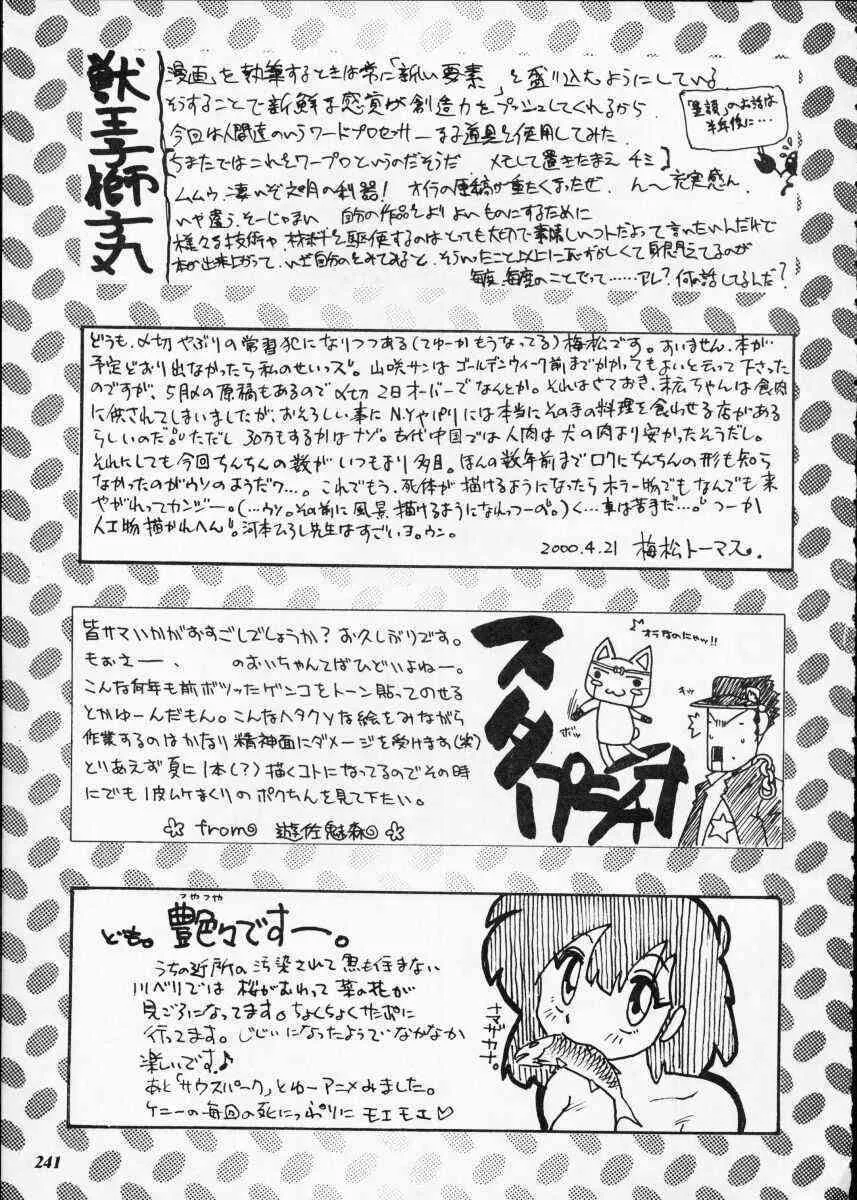 獣王子獅子丸
「漫画」を執筆するときは常に「新しい要素」を盛り込むようにしている
そうすることで新鮮な感覚が創造力をプッシュしてくれるから
今回は人間達のいうワードプロセッサーなる道具を使用してみた
ちまたではこれをワープロというのだそうだ メモして置きたまえ チミ]
ムムウ、凄いぞ文明の利器! オイラの原稿が重たくなったぜ ん〜充実感ん
いや違う、そーじゃない 自分の作品をよりよいものにするために
様々な技術や材料を駆使するのはとっても大切で素晴しいコトだよって言いたいんだけど
本が出来上がって、いざ自分のをみてみると、そういったこと以上にはずかしくて身悶えてるのが
毎度、毎度のことでって……アレ?何の話してるんだ?
のお話は
半年後に…
どうも、〆切やぶりの常習犯になりつつある(てゆーかもうなってる)梅松です。すいません、本が…
予定どおり出なかったら私のせいっス。山咲サンはゴールデンウィーク前までかかってもよいと云って下さった
のですが、5月〆の原稿もあるので〆切2日オーバーでなんとか。それはさておき、末広ちゃんは食肉
に供されてしまいましたが、おそろしい事にN.Yやパリには本当にそのまま料理を食わせる店がある
らしいのだ。ただし30万もするかはナゾ。古代中国では人肉は犬の肉より安かったそうだし。
それにしても今回ちんちんの数がいつもより多目。ほんの数年前までロクにちんちんの形も知ら
なかったのがウソのようだワ…。これでもう、死体が描けるようになったらホラー物でもなんでも来
やがれってカンジー。(…ウソ。その前に風景描けるようになれっつーの。)く…車は苦手だ…。つーか
人工物描かれへん。河本ひろし先生はすごいヨ。ウン。
2000.4.21 梅松トーマス。
皆サマいかがおすごしでしょうか?お久しぶりです。
もぉさー、 のおいちゃんてばひどいよねー。
こんな何年も前ボツったゲンコをトーン貼ってのせる
とかゆーんだもん。こんなヘタクソな絵をみながら
作業するのはかなり精神面にダメージを受けます(笑)
とりあえず夏に1本(?)描くコトになってるのでその時
にでも1皮ムケまくりのボクちんを見て下たい。
☆from◎ 遊佐魅森◎☆
♪オラなのにゃッ!!
スタープラチナ
ども。艶々ですー。
つやつや
うちの近所の汚染されて魚も住まない
川べりでは 桜がおわって菜の花が
見ごろになってます。ちょくちょくサンポに
行ってます。じじいになったようでなかなか
楽しいです♪
あと「サウスパーク」とゆーアニメみました。
ケニーの毎回の死にっぷりにモエモエ♡
ナマザカナ。
241